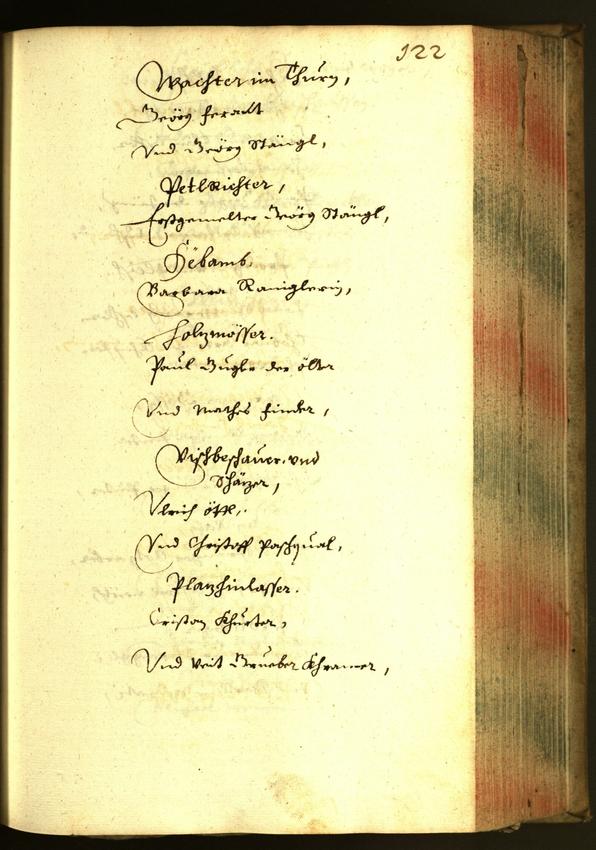 122
Wachter im Thurn,
Geörg feralt
Vnd Geörg Stängl,
Petlrichter,
Erstgemelter Geörg Stängl,
Hebamb,
Barbara Raniglerin,
Holzmösser.
Paul Gugler der ölter
Vnd Mathes finder,
Vischbeschauer vnd
Schäzer,
Vlrich öttl,
Vnd Christoff Paschqual,
Plazhinlasser.
Cristan Khurter,
Vnd Veit Grueber Khramer,